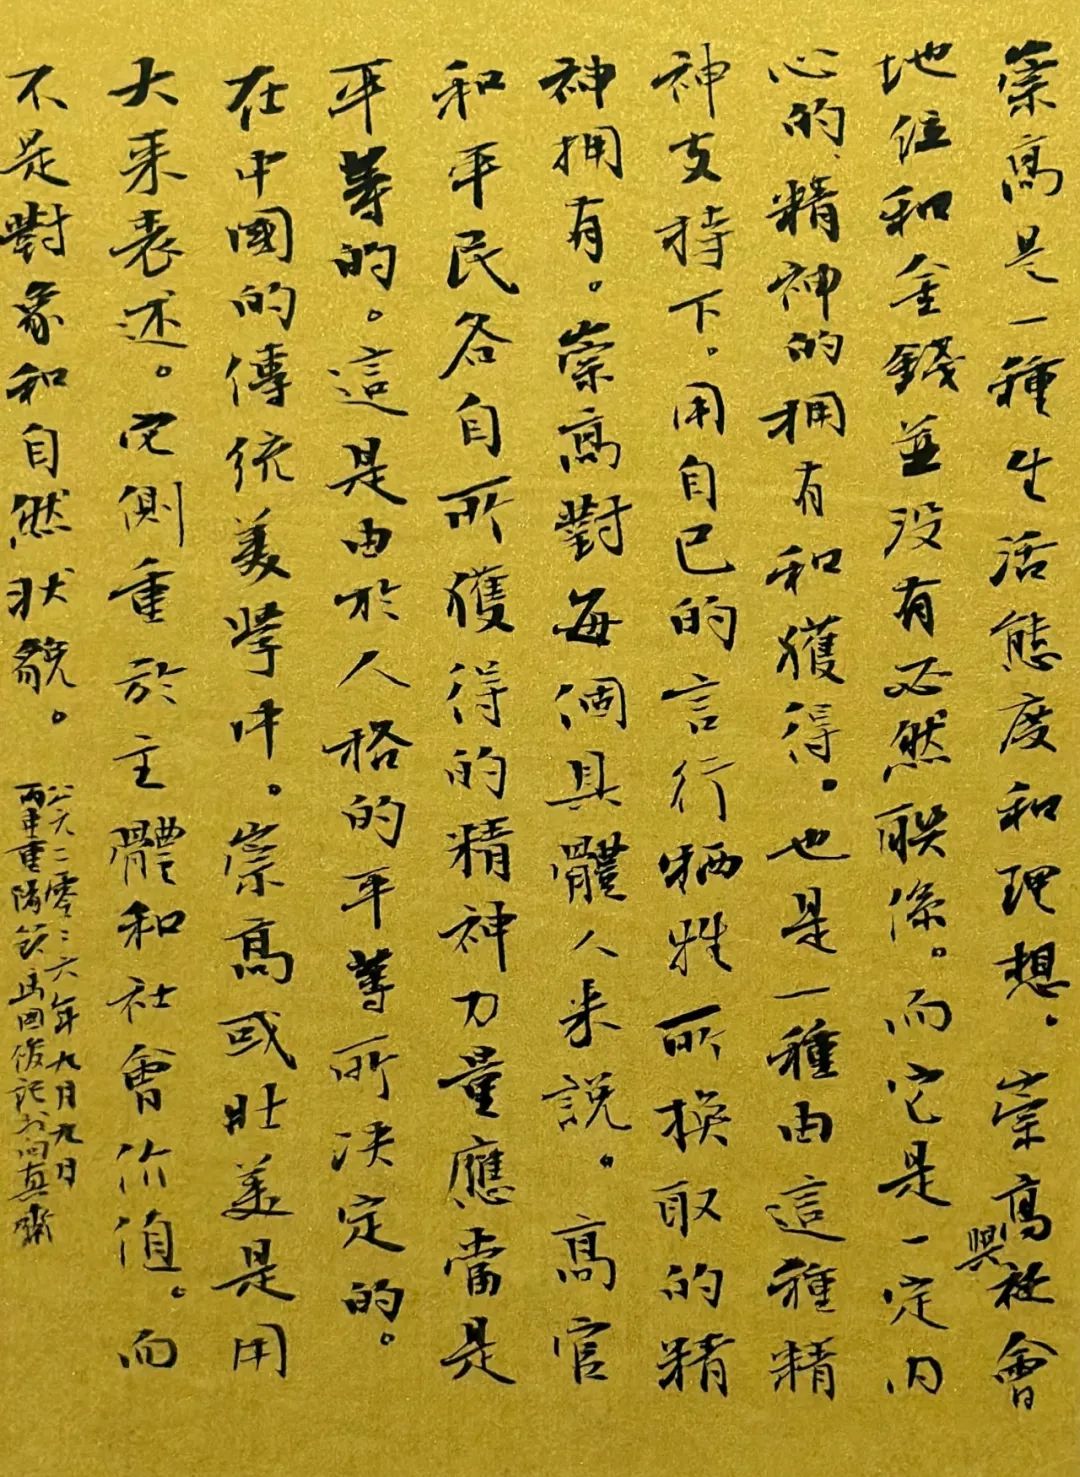 崇高是一種生活態度和理想。崇高與社會
地位和金錢並没有必然联係。而它是一定内
心的、精神的拥有和獲得。也是一種由這種精
神支持下。用自已的言行牺牲所换取的精
神拥有。崇高對每個具體人来說。高官
和平民各自所獲得的精神力量應當是
平等的。這是由於人格的平等所决定的。
在中國的傳統美學中。崇高或壯美是用
大来表述。它側重於主體和社會价值。而
不是對象和自然状貌。
公元二零二六年九月九日
丙重陽 國俊記於尚真齋